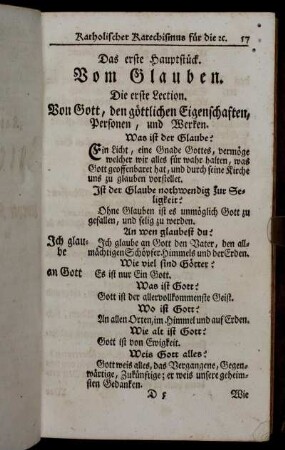 Katholischer Katechismus für die ꝛc. 57
Das erste Hauptstück.
Vom Glauben.
Die erste Lection.
Von Gott, den göttlichen Eigenschaften,
Personen, und Werken.
Was ist der Glaube?
Ein Licht, eine Gnade Gottes, vermöge
welcher wir alles für wahr halten, was
Gott geoffenbaret hat, und durch seine Kirche
uns zu glauben vorstellet.
Ist der Glaube nothwendig zur Se-
ligkeit?
Ohne Glauben ist es unmöglich Gott zu
gefallen, und selig zu werden.
An wen glaubest du?
Ich glau- Ich glaube an Gott den Vater, den all-
be mächtigen Schöpfer Himmels und der Erden.
Wie viel sind Götter?
an Gott Es ist nur Ein Gott.
Was ist Gott?
Gott ist der allervollkommenste Geist.
Wo ist Gott?
An allen Orten, im Himmel und auf Erden.
Wie alt ist Gott?
Gott ist von Ewigkeit.
Weis Gott alles?
Gott weis alles, das Vergangene, Gegen-
wärtige, Zukünftige; er weis unsere geheim-
sten Gedanken.
D 5 Wie